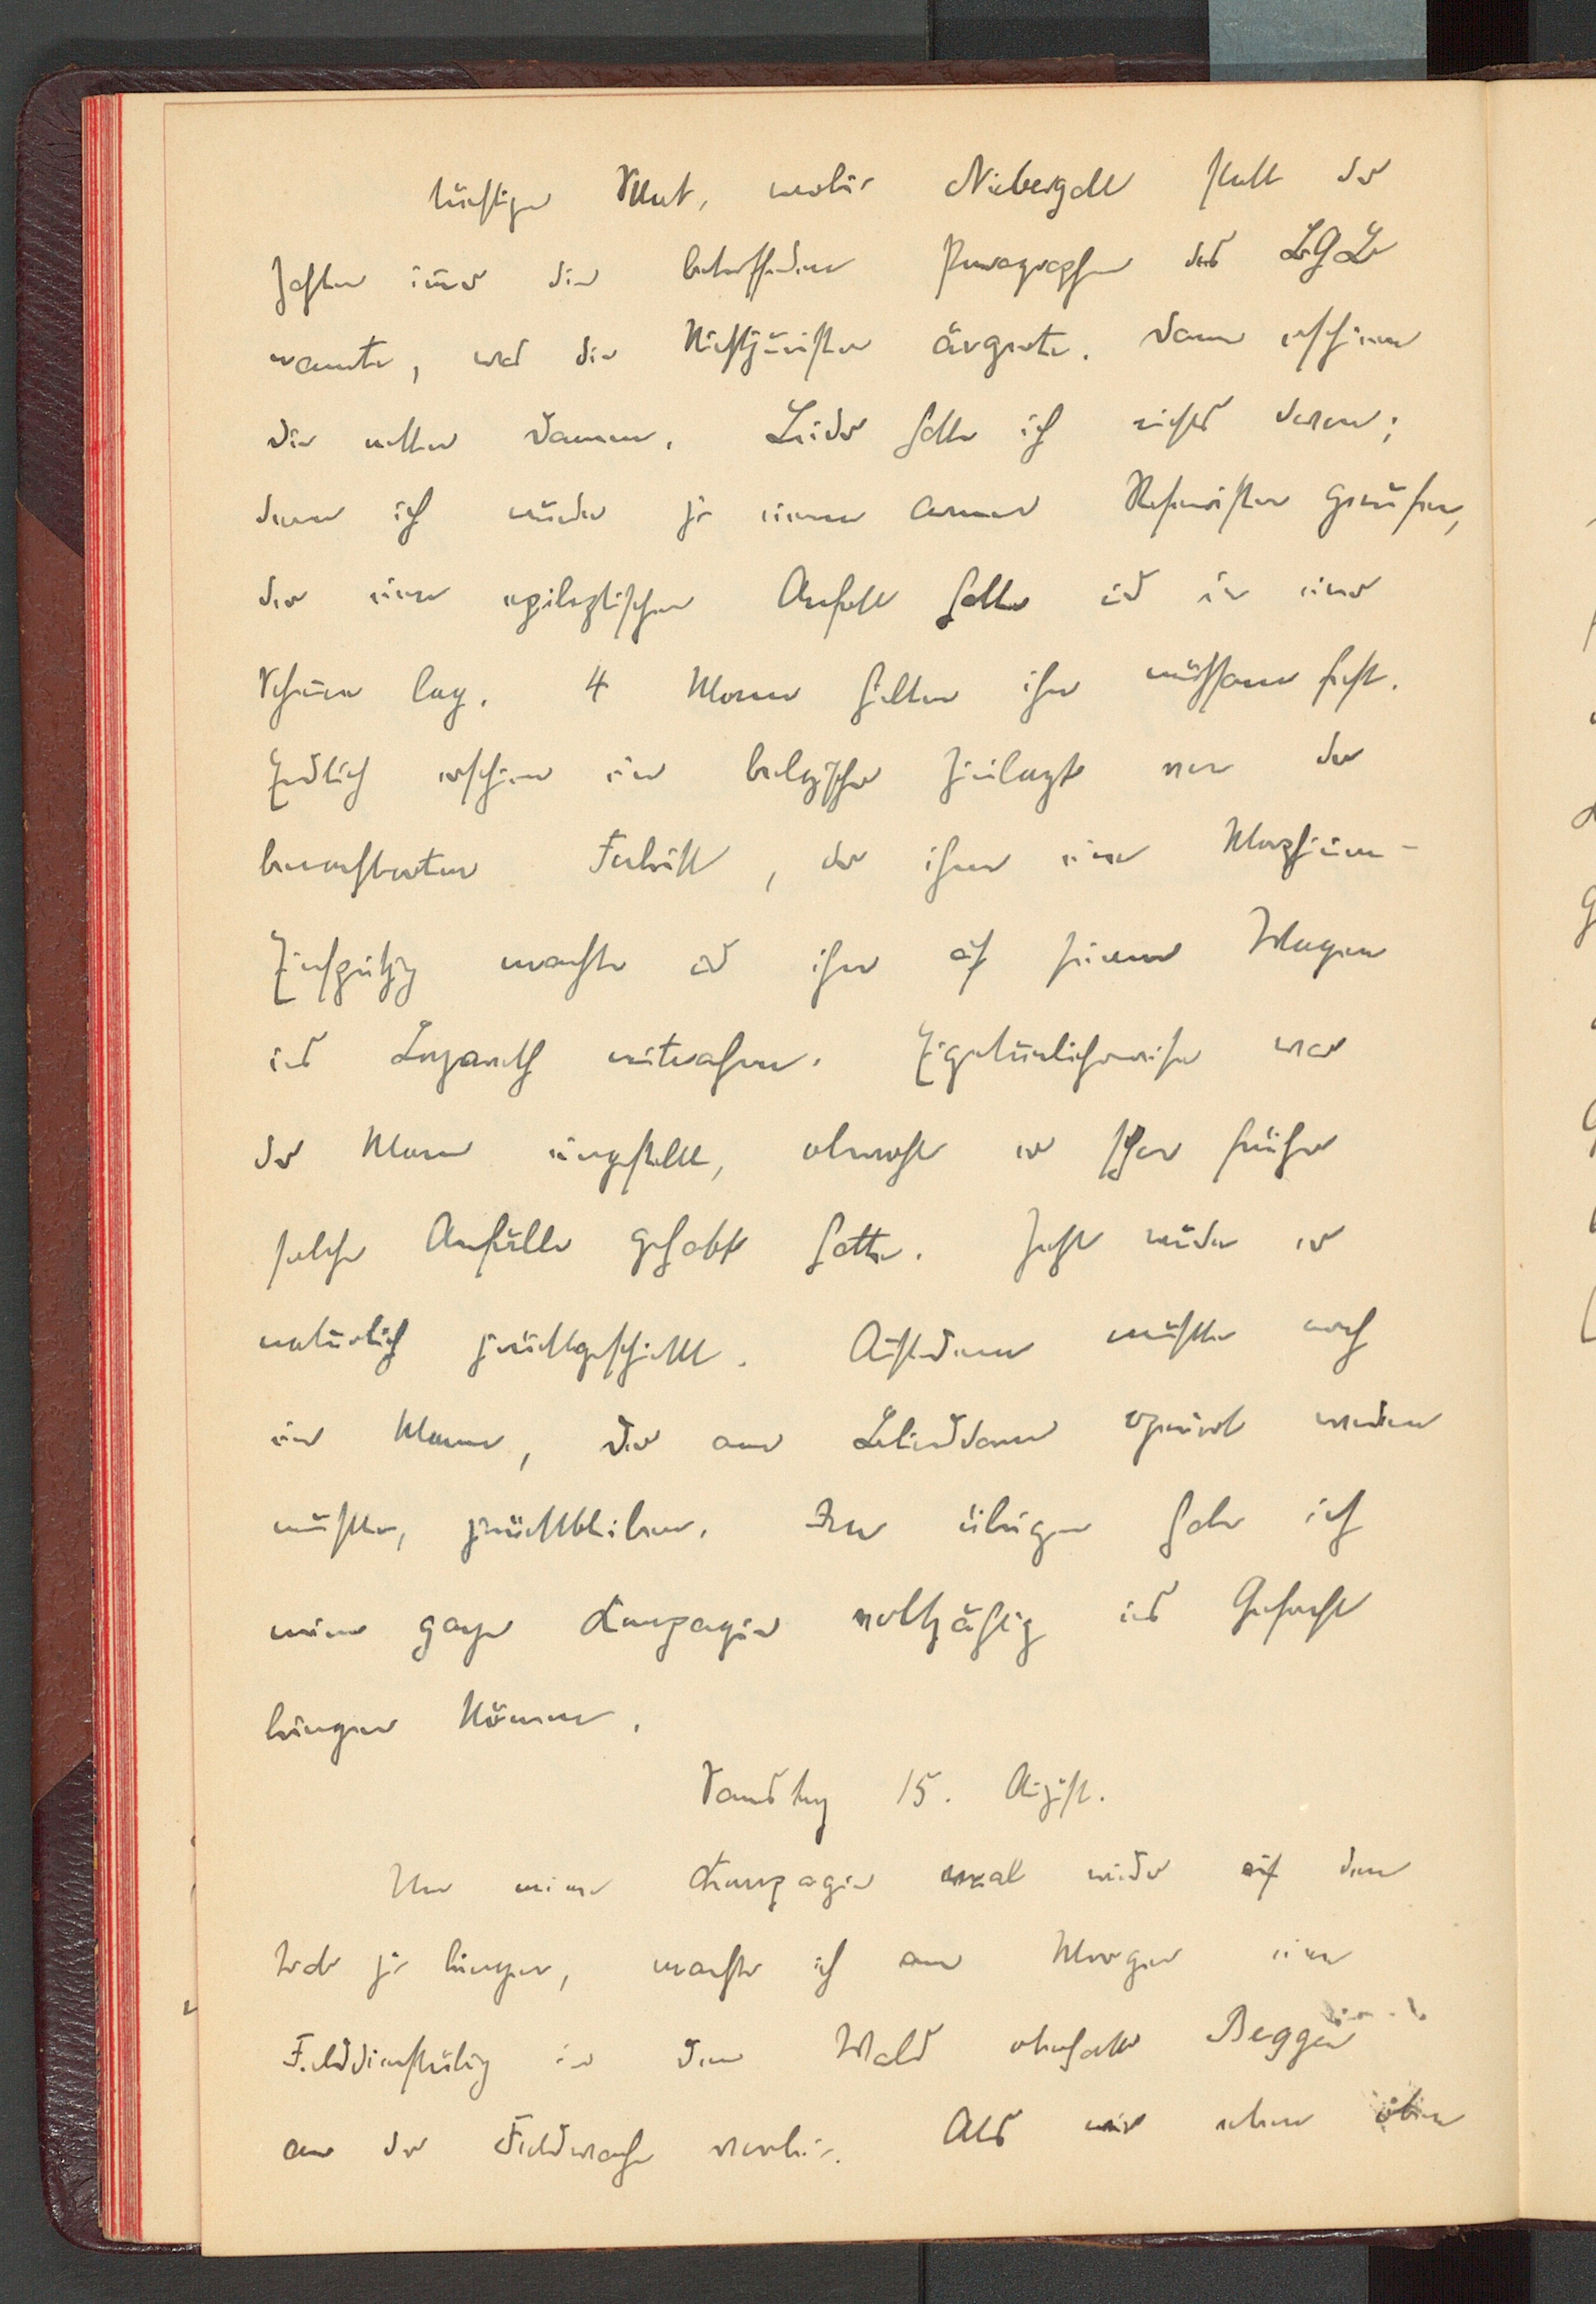 tüchtigen Skat, wobei Niebergall statt der
Zahlen immer die betreffenden Paragraphen des BGB
nannte, was die Nichtjuristen ärgerte. Dann erschienen
die netten Damen. Leider hatte ich nichts davon;
denn ich wurde zu einem armen Reservisten gerufen,
der einen epileptischen Anfall hatte und in einer
Scheune lag. 4 Mann hielten ihn mühsam fest.
Endlich erschien ein belgischer Zivilarzt von der
benachbarten Fabrik, der ihm eine Morphium-
Einspritzg machte und ihn auf seinem Wagen
ins Lazareth mitnahm. Eigentümlicherweise war
der Mann eingestellt, obwohl er schon früher
solche Anfälle gehabt hatte. Jetzt wurde er
natürlich zurückgeschickt. Außerdem mußte noch
ein Mann, der am Blinddarm operiert werden
mußte, zurückbleiben. Im übrigen habe ich
meine ganze Kompagnie vollzählig ins Gefecht
bringen können.
Samstag 15. August.
Um meine Kompagnie mal wieder auf den
Trab zu bringen, machte ich am Morgen eine
Felddienstübg in den Wald oberhalb Beggen
an der Feldwache vorbei. Als wir eben oben